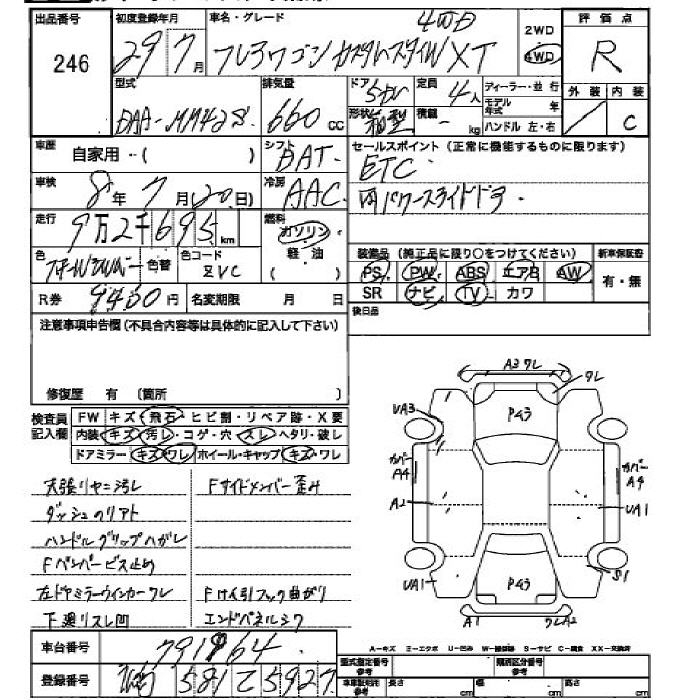 出品番号 初度登録年月 車名・グレード 4WD 2WD 評価点
246 29年7月 フレアワゴン カスタムスタイル XT 4WD R
型式 排気量 ドア 定員 ディーラー・並行 外装 内装
DAA-MM42S 660cc 5ドア 4人 モデル年式 年
形状 箱型 積載 - kg ハンドル 左・右 / C
車歴 自家用・( ) シフト DAT セールスポイント(正常に機能するものに限ります)
車検 8年7月(20日) 冷房 AAC ETC
両パワースライドドア
走行 9万2千695km 燃料 ガソリン
色 色替 色コード ZVC 軽油 装備品(純正品に限り○をつけてください) 新車保証書
PS PW ABS エアB AW 有・無
R券 9430円 名変期限 月 日 SR ナビ TV カワ
注意事項申告欄(不具合内容等は具体的に記入して下さい) 後日品
修復歴 有 (箇所 )
検査員記入欄 FW キズ・飛石・ヒビ割・リペア跡・X要
内装・キズ・汚レ・コゲ・穴・スレ・ヘタリ・破し
ドアミラー・キズ・ワレ ホイール・キャップ・キズ・ワレ
天張リヤニ汚レ Fサイドメンバー歪み
ダッシュのリアト
ハンドルグリップハガレ
Fバンパービス止め
左ドアミラーウインカーワレ Fけん引フック曲がり
下廻リスレ凹 エンドパネルシワ
A3ワレ
ワレ
UA3 P43
カバーA4 カバーA4
A2 UA1
UA1 P43 S1
A1 ワレA2
A-キズ E-エクボ U-凹み W-補修跡 S-サビ C-腐食 XX-交換済
車台番号 791964 型式指定番号 類別区分番号
登録番号 581 て 5927 参考 長さ cm 幅 cm 高さ cm